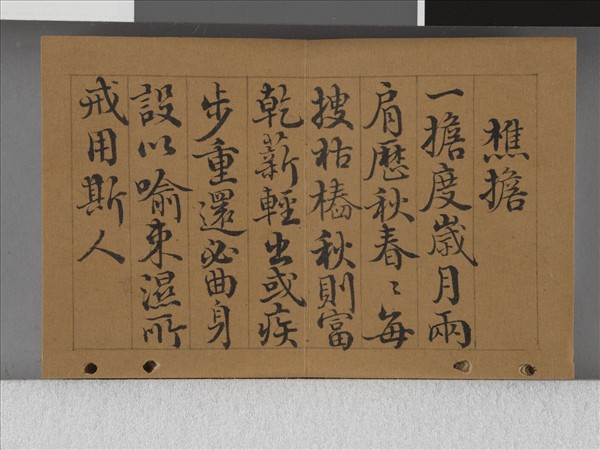 樵擔
一擔度歲月兩
肩歷秋春〻每
搜枯樁秋則富
乾薪輕出或疾
步重還必曲身
設以喻束濕所
戒用斯人